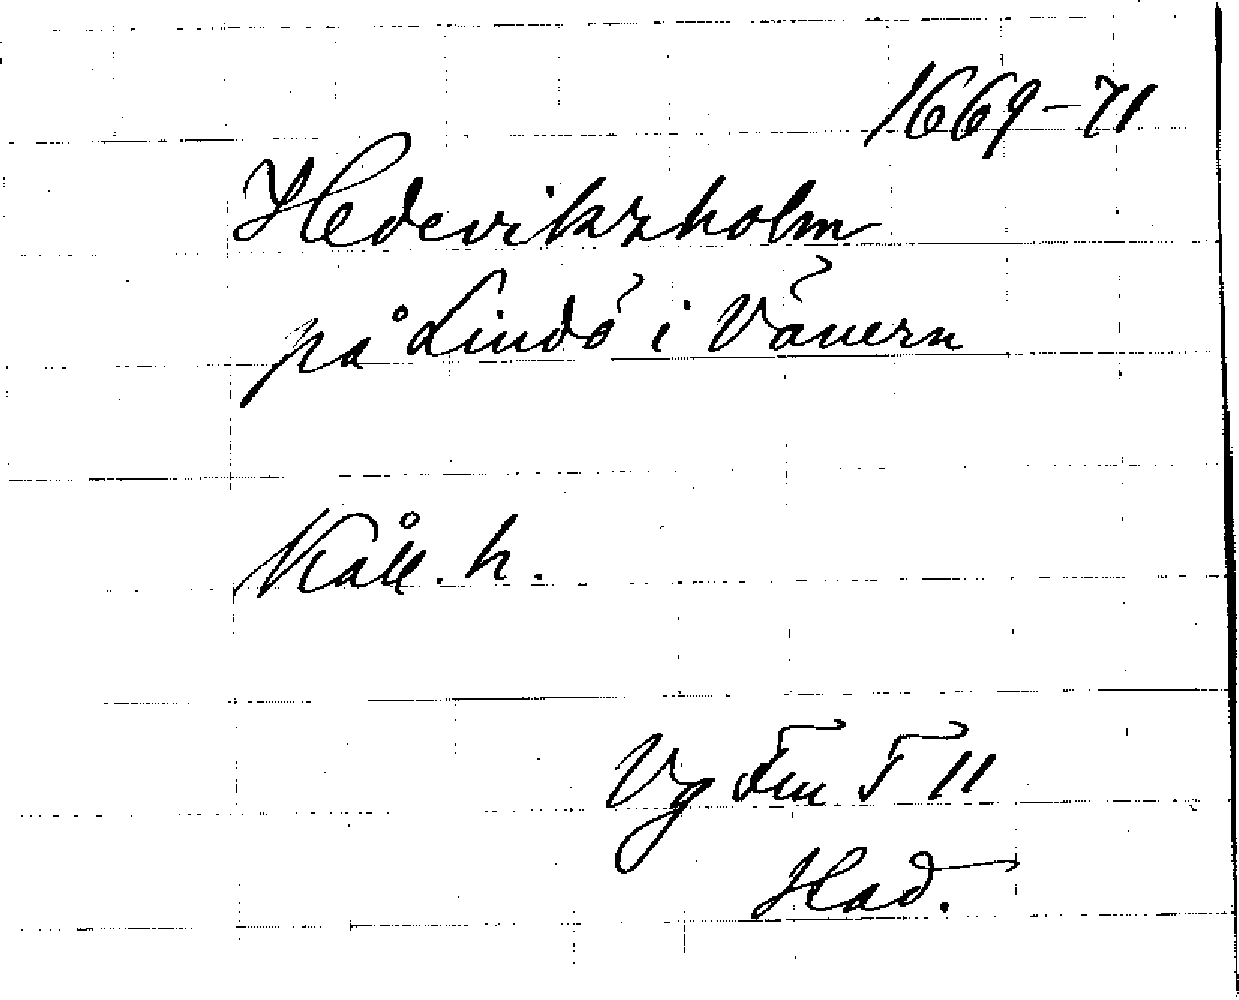 1669-71
Hedevikzholm
på Lindö i Vänern
Kåll. h.
Vg Fm F 11
Had.